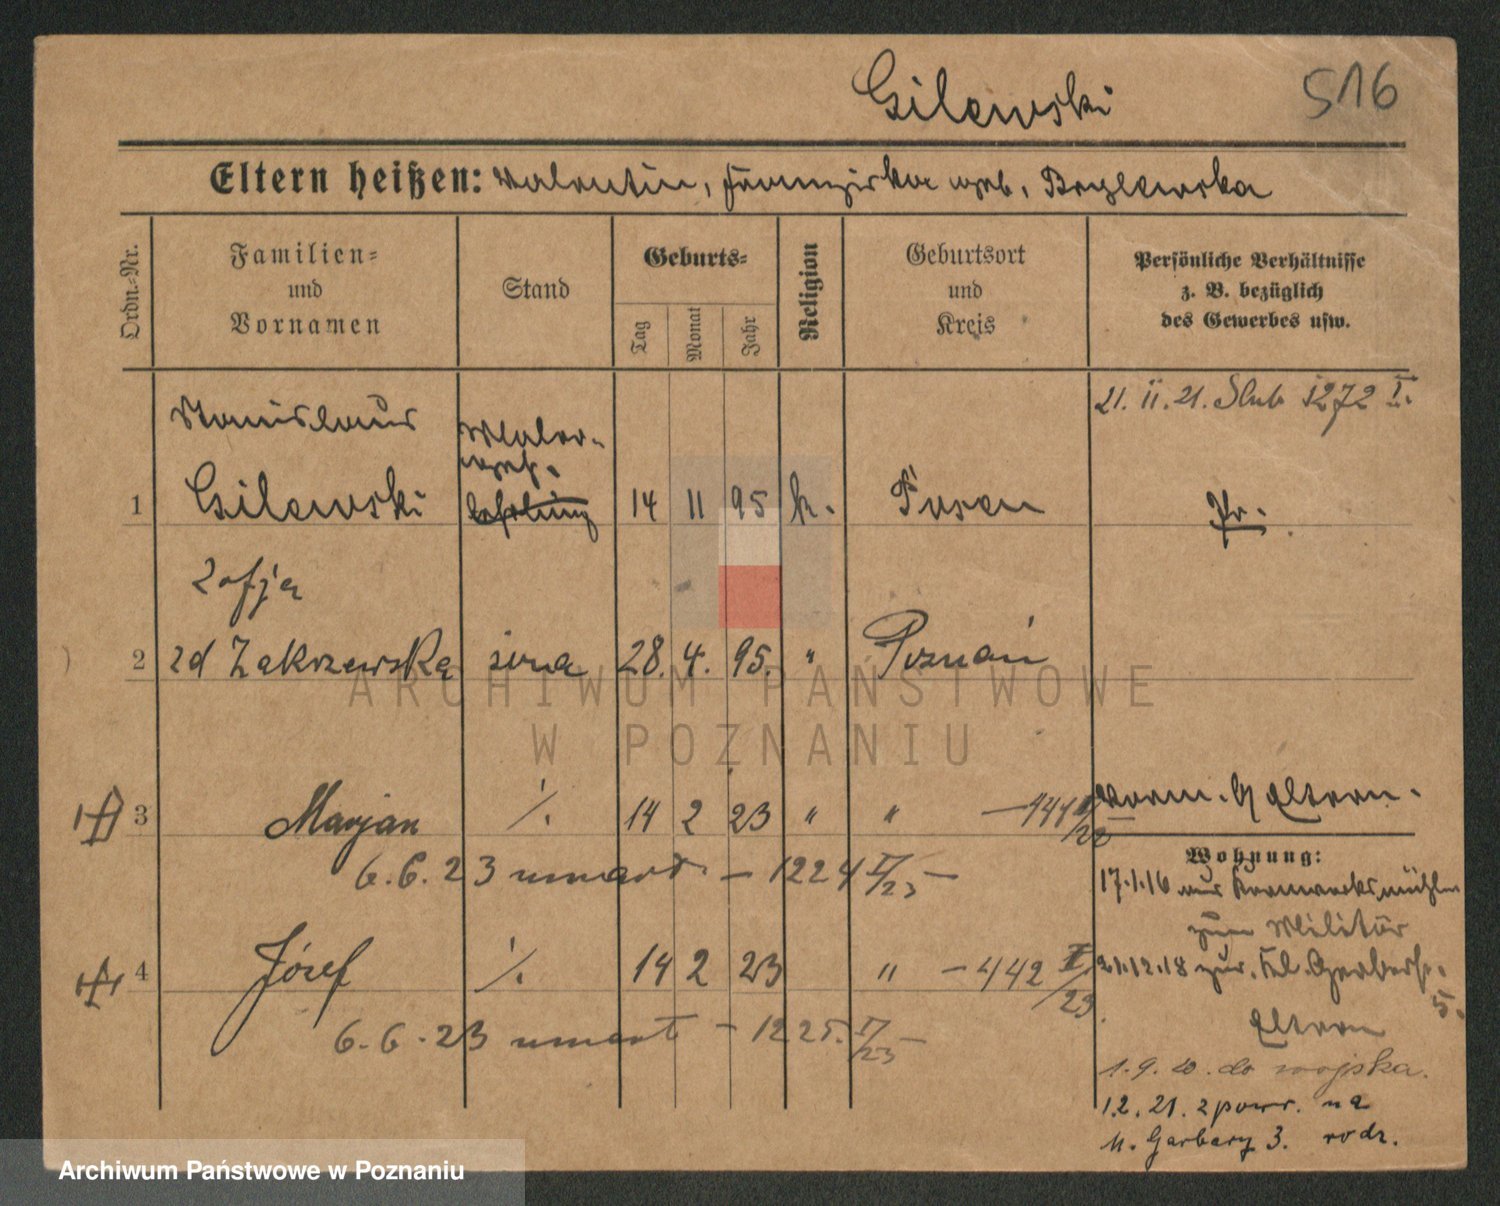 Gilewski
516
Eltern heißen: Valentin, Franziska geb. Brylewska
Ordn.=Nr.
Familien=
und
Vornamen
Stand
Geburts=
Tag
Monat
Jahr
Religion
Geburtsort
und
Kreis
Persönliche Verhältnisse
z. B. bezüglich
des Gewerbes usw.
21. II. 21. Slub 1272 I.
Stanislaus
Maler-
1 Gilewski
lehrling
14 11 95 k. Posen
Pr.
Zofja
2 zd Zakrzewska żona 28. 4. 95. " Poznań
3 Marjan ·/. 14 2 23 " " —441
Vorm. Eltern.
6.6.23 umarł — 1224 I/23 —
Wohnung:
17.1.16 aus Kronwerksmühlen
zum Militär
4 Józef ·/. 14 2 23 " — 442 I/23
21.12.18 zur. Kl. Gerberstr. 5.
Eltern
6.6.23 umarł — 1225. I/23 —
1.9.20. do wojska.
1.2.21. z powr. na
M. Garbary 3. rodz.
ARCHIWUM PAŃSTWOWE
W POZNANIU
Archiwum Państwowe w Poznaniu